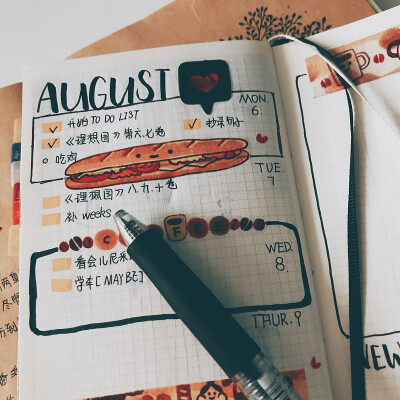 AUGUST
MON.
6.
开始 TO DO LIST
《理想国》第六.七卷
抄录句子
吃鸡
TUE.
7
《理想国》八.九.十卷
补 weeks
WED.
8.
看会儿尼
学车[MAYBE]
THUR. 9
NEW